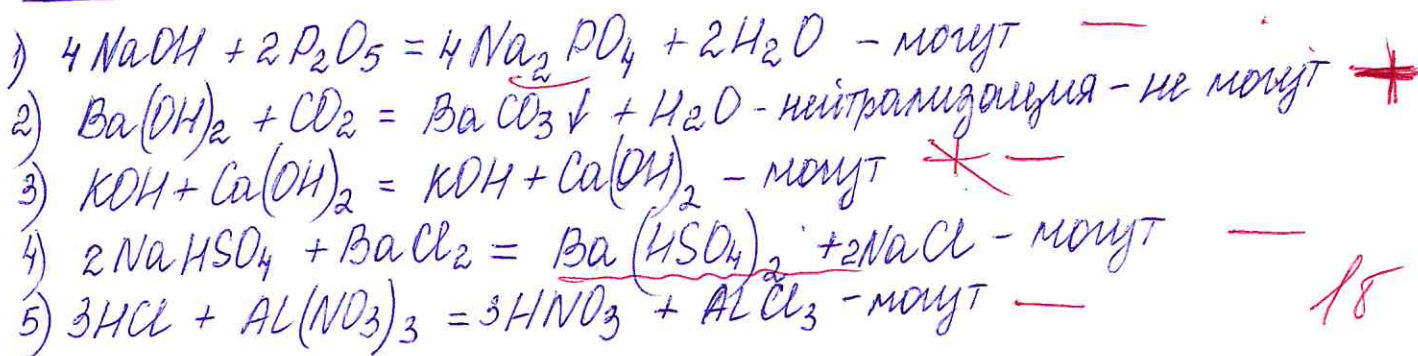 1) 4NaOH + 2P₂O₅ = 4Na₂PO₄ + 2H₂O - могут —
2) Ba(OH)₂ + CO₂ = BaCO₃↓ + H₂O - нейтрализация - не могут +
3) KOH + Ca(OH)₂ = KOH + Ca(OH)₂ - могут —
4) 2NaHSO₄ + BaCl₂ = Ba(HSO₄)₂ + 2NaCl - могут —
5) 3HCl + Al(NO₃)₃ = 3HNO₃ + AlCl₃ - могут — 1б